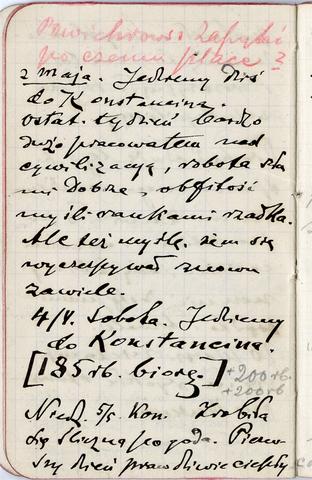 Pawichrowi zapytać
po czemu płacę?
2 maja. Jedziemy dziś
do Konstancina.
ostat. tydzień bardzo
dużo pracowałem nad
cywilizacją, robota szła
mi dobrze, obfitość
myśli rankami rzadka.
Ale też myślę, żem się
wyczerpywał znowu
zawiele.
4/V. Sobota. Jedziemy
do Konstancina.
[185 rb. biorę.] +200 rb.
+200 rb
Niedz. 5/5 Kon. Zrobiła
się śliczna pogoda. Pierw-
szy dzień prawdziwie ciepły